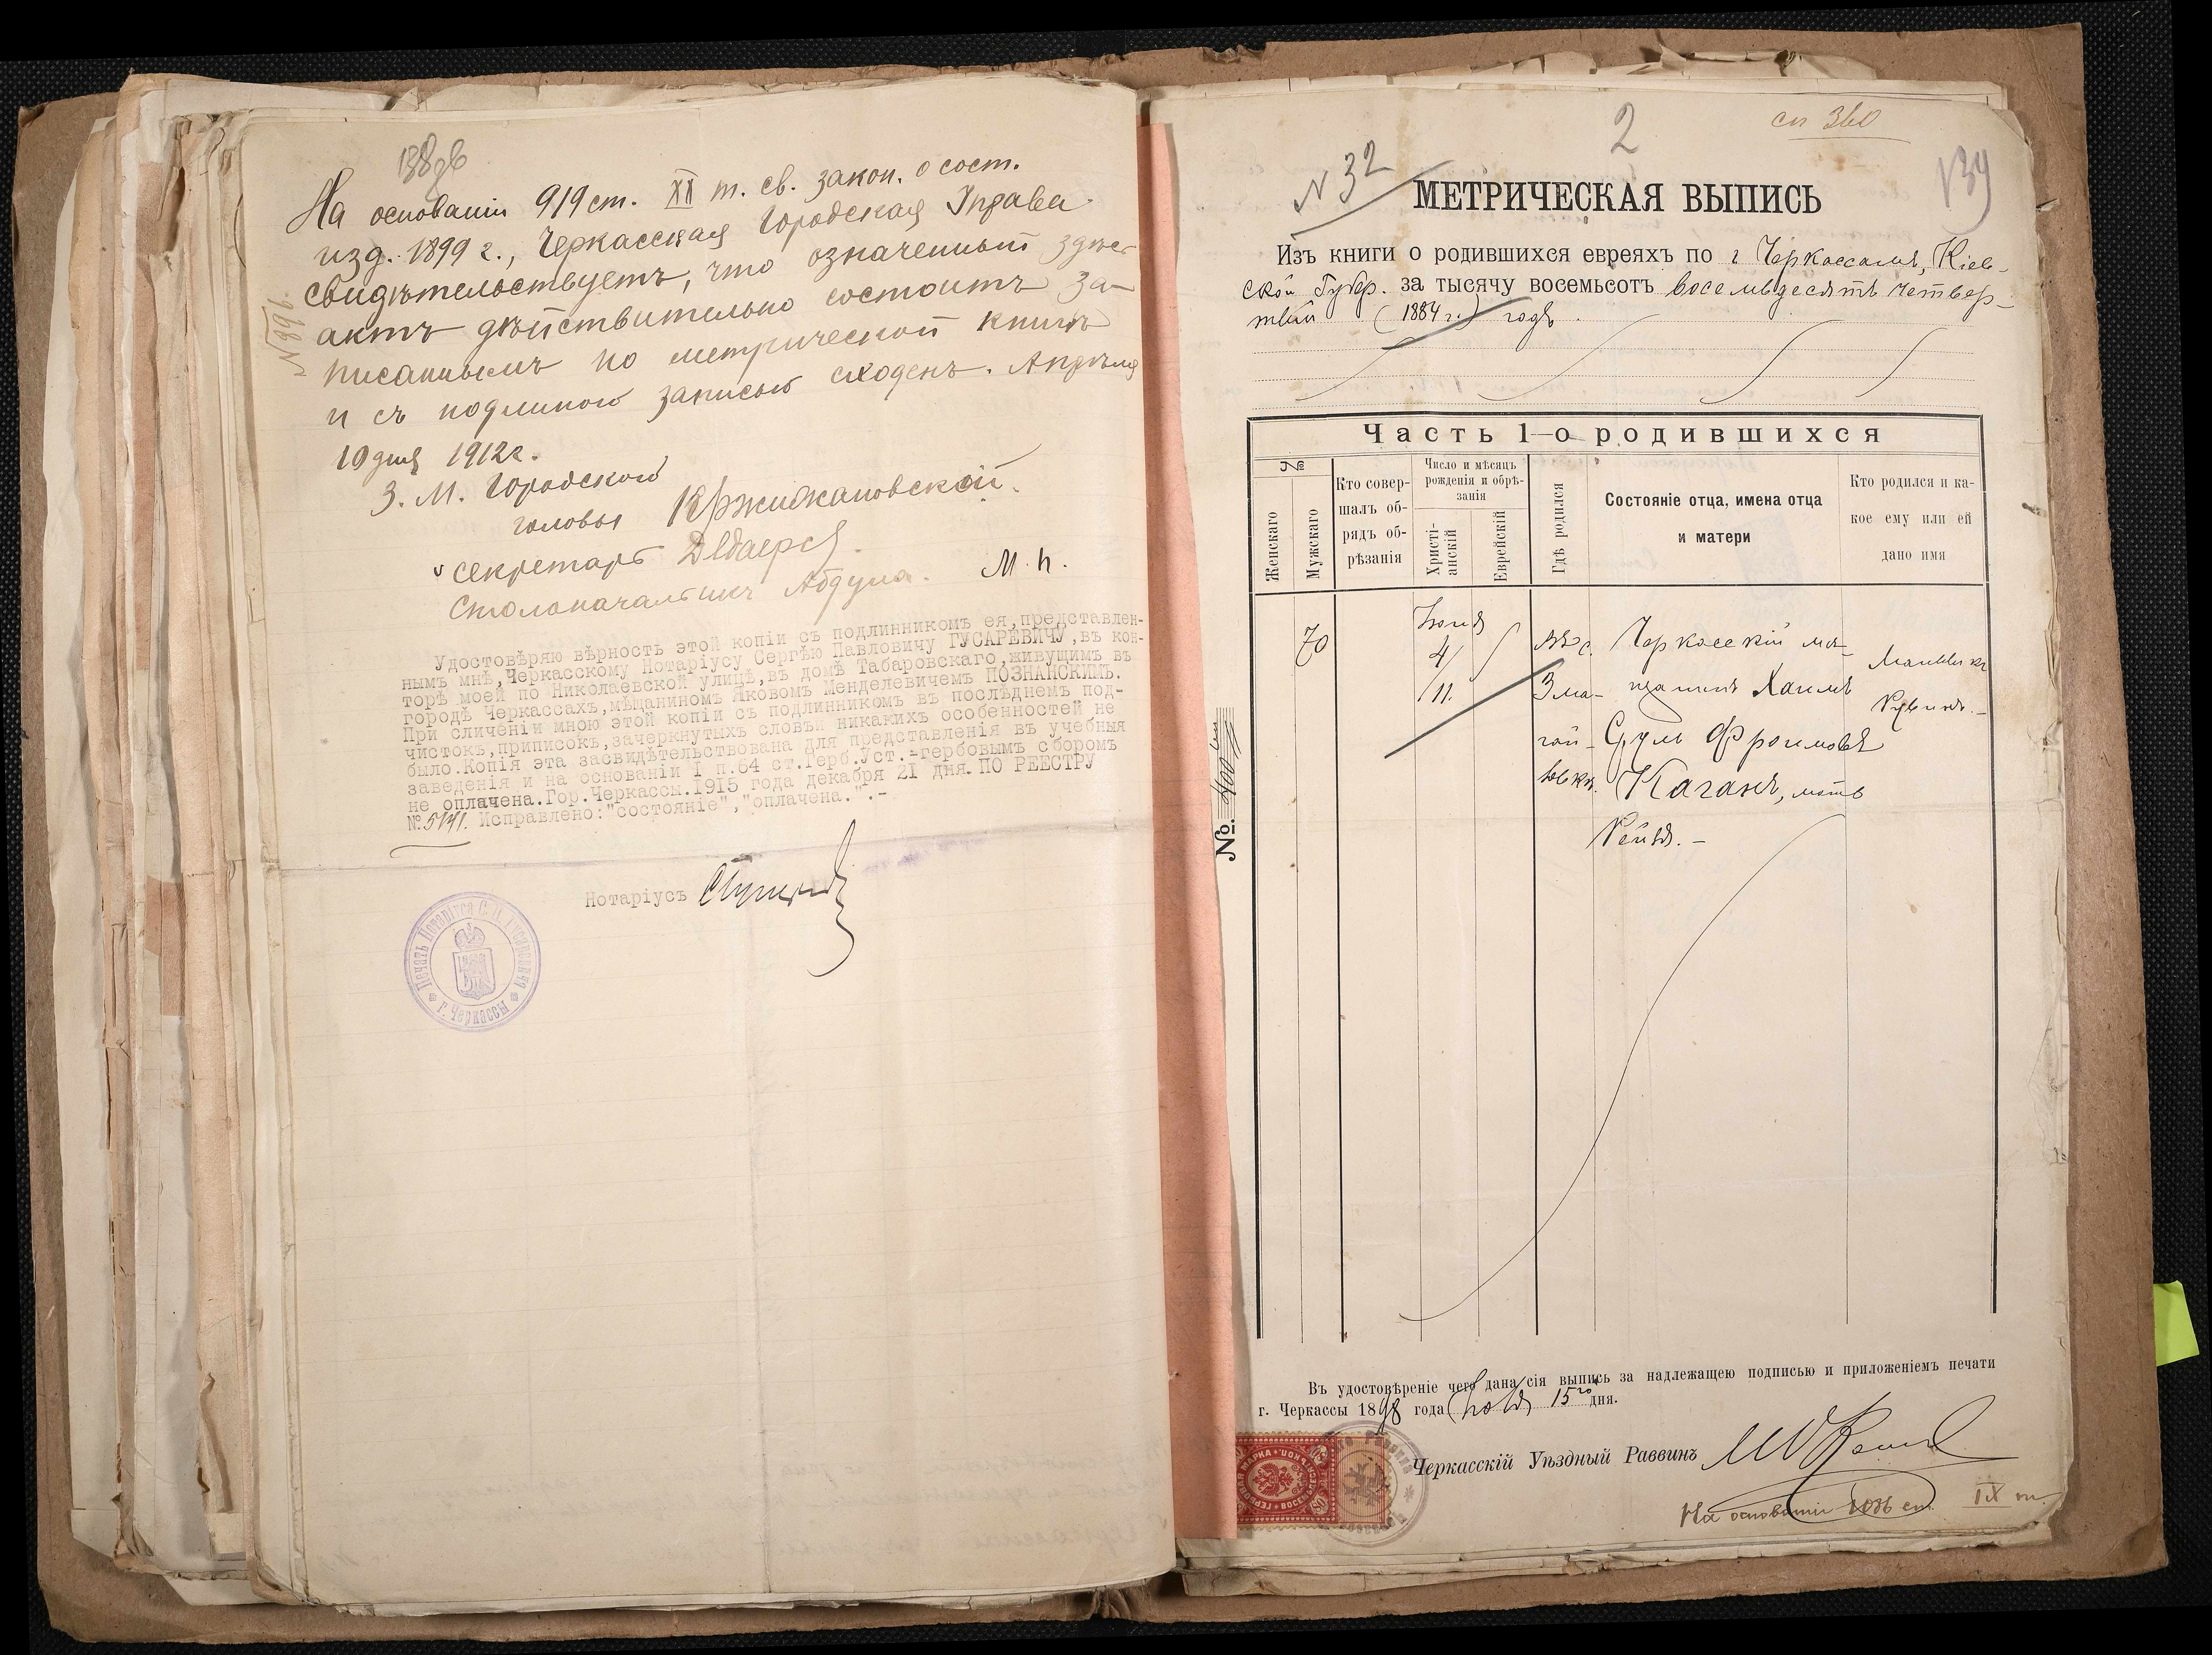 138об
На основаніи 919 ст. IX т. св. закон. о сост.
изд. 1899 г., Черкасская Городская Управа
свидѣтельствуетъ, что означенный здѣсь
актъ дѣйствительно состоитъ за-
писаннымъ по метрической книгѣ
и съ подлиною записью сходенъ. Апрѣля
10 дня 1912 г.
З. М. Городского
головы Кржижановскій.
Секретарь
Столоначальникъ Абдула.
М. п.
Удостовѣряю вѣрность этой копіи съ подлинникомъ ея, представлен-
нымъ мнѣ, Черкасскому Нотаріусу Сергѣю Павловичу ГУСАРЕВИЧУ, въ кон-
торѣ моей по Николаевской улицѣ, въ домѣ Табаровскаго, живущимъ въ
городѣ Черкассахъ, мѣщаниномъ Яковомъ Менделевичемъ ПОЗНАНСКИМЪ.
При сличеніи мною этой копіи съ подлинникомъ въ послѣднемъ под-
чистокъ, приписокъ, зачеркнутыхъ словъ и никакихъ особенностей не
было. Копія эта засвидѣтельствована для представленія въ учебныя
заведенія и на основаніи I п. 64 ст. Герб. Уст.-гербовымъ сборомъ
не оплачена. Гор. Черкассы. 1915 года декабря 21 дня. ПО РЕЕСТРУ
№ 5141. Исправлено: "состояніе", "оплачена.".-
Нотаріусъ
Печать Нотаріуса С. П. Гусаревича
г. Черкассы
2
сп 360
N 32
139
МЕТРИЧЕСКАЯ ВЫПИСЬ
Изъ книги о родившихся евреяхъ по г Черкассамъ, Кіев-
ской Губер. за тысячу восемьсотъ восемьдесятъ четвер-
тый (1884 г.) годъ.
Часть 1-о родившихся
№
Женскаго
Мужскаго
Кто совер-
шалъ об-
рядъ об-
рѣзанія
Число и мѣсяцъ
рожденія и обрѣ-
занія
Христі-
анскій
Еврейскій
Гдѣ родился
Состояніе отца, имена отца
и матери
Кто родился и ка-
кое ему или ей
дано имя
70
4/
11.
Въ с.
Зма-
гай-
ловкѣ.
Черкасскій мѣ-
щанинъ Хаимъ
Суль Фроимовъ
Каганъ, мать
Рейзя. -
Мальчикъ
Рувинъ. -
№.
Въ удостовѣреніе чего дана сія выпись за надлежащею подписью и приложеніемъ печати
г. Черкассы 1898 года 15го дня.
Черкасскій Уѣздный Раввинъ
На основаніи 1086 ст. IX т.